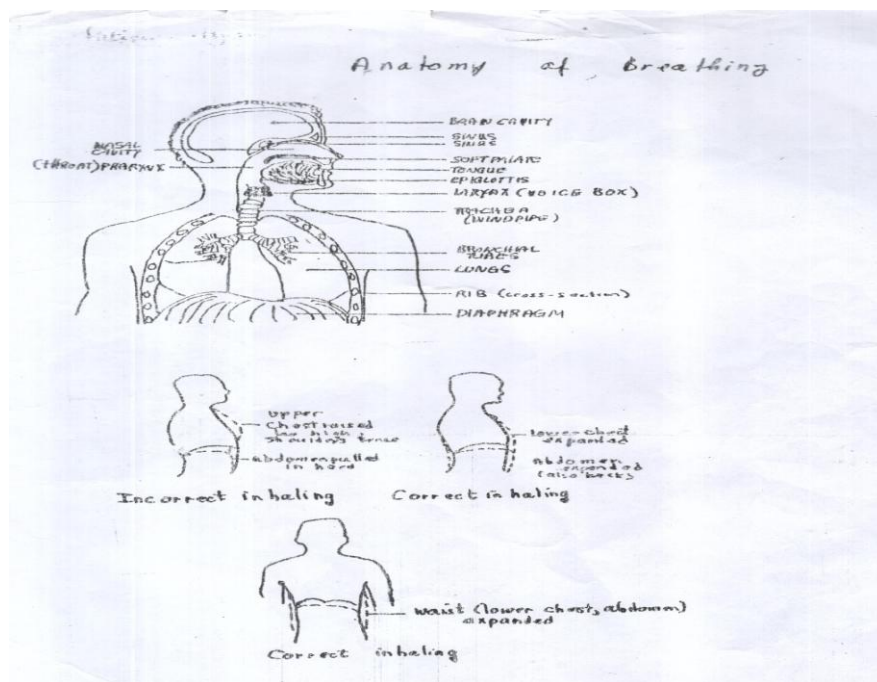 Anatomy of Breathing
BRAIN CAVITY
SINUS
SINUS
NASAL
CAVITY
(THROAT) PHARYNX
SOFT PALATE
TONGUE
EPIGLOTTIS
LARYNX (VOICE BOX)
TRACHEA
(WINDPIPE)
BRONCHIAL
LUNGS
RIB (cross-section)
DIAPHRAGM
upper
chest raised
too high
shoulders tense
Abdomen pulled
in hard
Incorrect inhaling
lower chest
expanded
Abdomen
expanded
(also back)
Correct inhaling
waist (lower chest, abdomen)
expanded
Correct inhaling